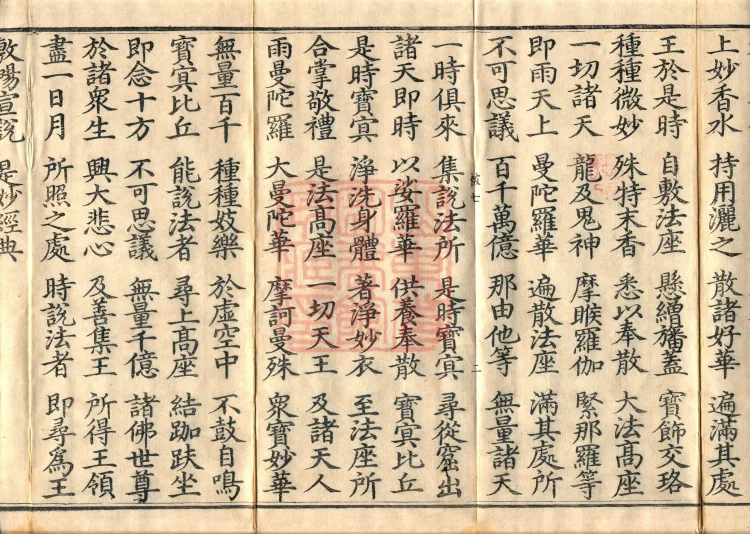 上妙香水 持用灑之 散諸好華 遍滿其處
王於是時 自敷法座 懸繒旛蓋 寶飾交珞
種種微妙 殊特末香 悉以奉散 大法髙座
一切諸天 龍及鬼神 摩睺羅伽 緊那羅等
即雨天上 曼陀羅華 遍散法座 滿其處所
不可思議 百千萬億 那由他等 無量諸天
七 二
一時俱來 集說法所 是時寶㝠 尋從窟出
諸天即時 以娑羅華 供養奉散 寶㝠比丘
是時寶㝠 淨洗身體 著淨妙衣 至法座所
合掌敬禮 是法髙座 一切天王 及諸天人
雨曼陀羅 大曼陀華 摩訶曼殊 衆寶妙華
無量百千 種種妓樂 於虛空中 不鼓自鳴
寶㝠比丘 能說法者 尋上髙座 結跏趺坐
即念十方 不可思議 無量千億 諸佛世尊
於諸衆生 興大悲心 及善集王 所得王領
盡一日月 所照之處 時說法者 即尋爲王
敷暢宣說 是妙經典